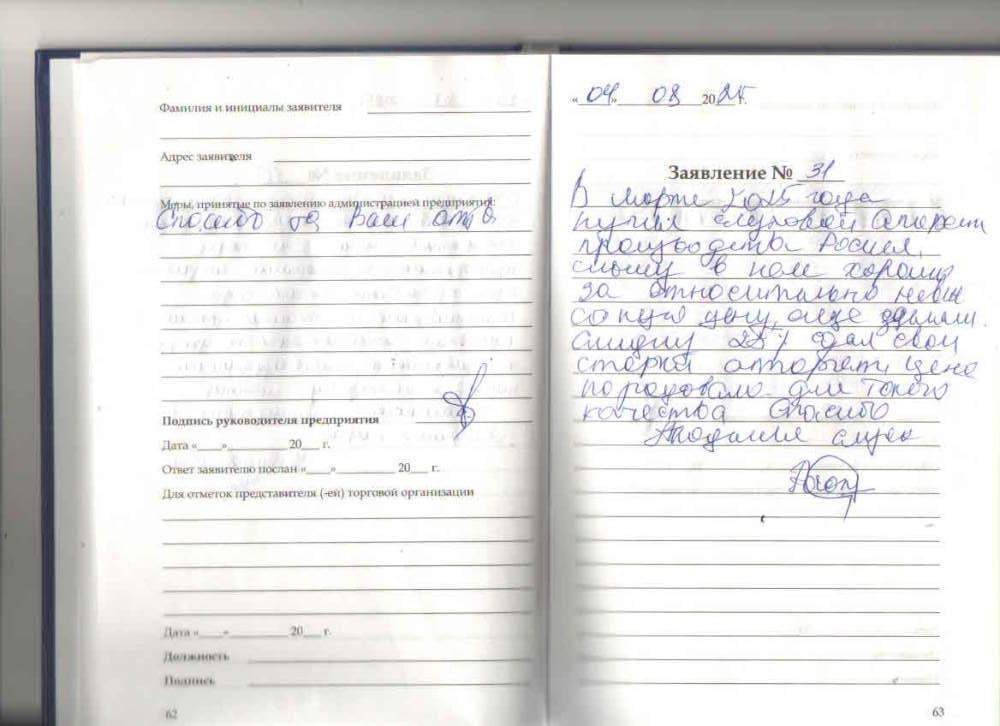 Фамилия и инициалы заявителя
Адрес заявителя
Меры, принятые по заявлению администрацией предприятия:
Спасибо за Ваш отзв
Подпись руководителя предприятия
Дата «____»__________ 20___ г.
Ответ заявителю послан «____»__________ 20___ г.
Для отметок представителя (-ей) торговой организации
Дата «____»__________ 20___ г.
Должность
Подпись
62
«04» 08 2025г.
Заявление № 31
В марте 2025 года
купил слуховой апарат
производства Россия,
слышу в нем хорошо
за относительно небол
цену, еще зделали
скидку 25% дал свой
старый аппарат, цена
порадовала для такого
качества Спасибо
63